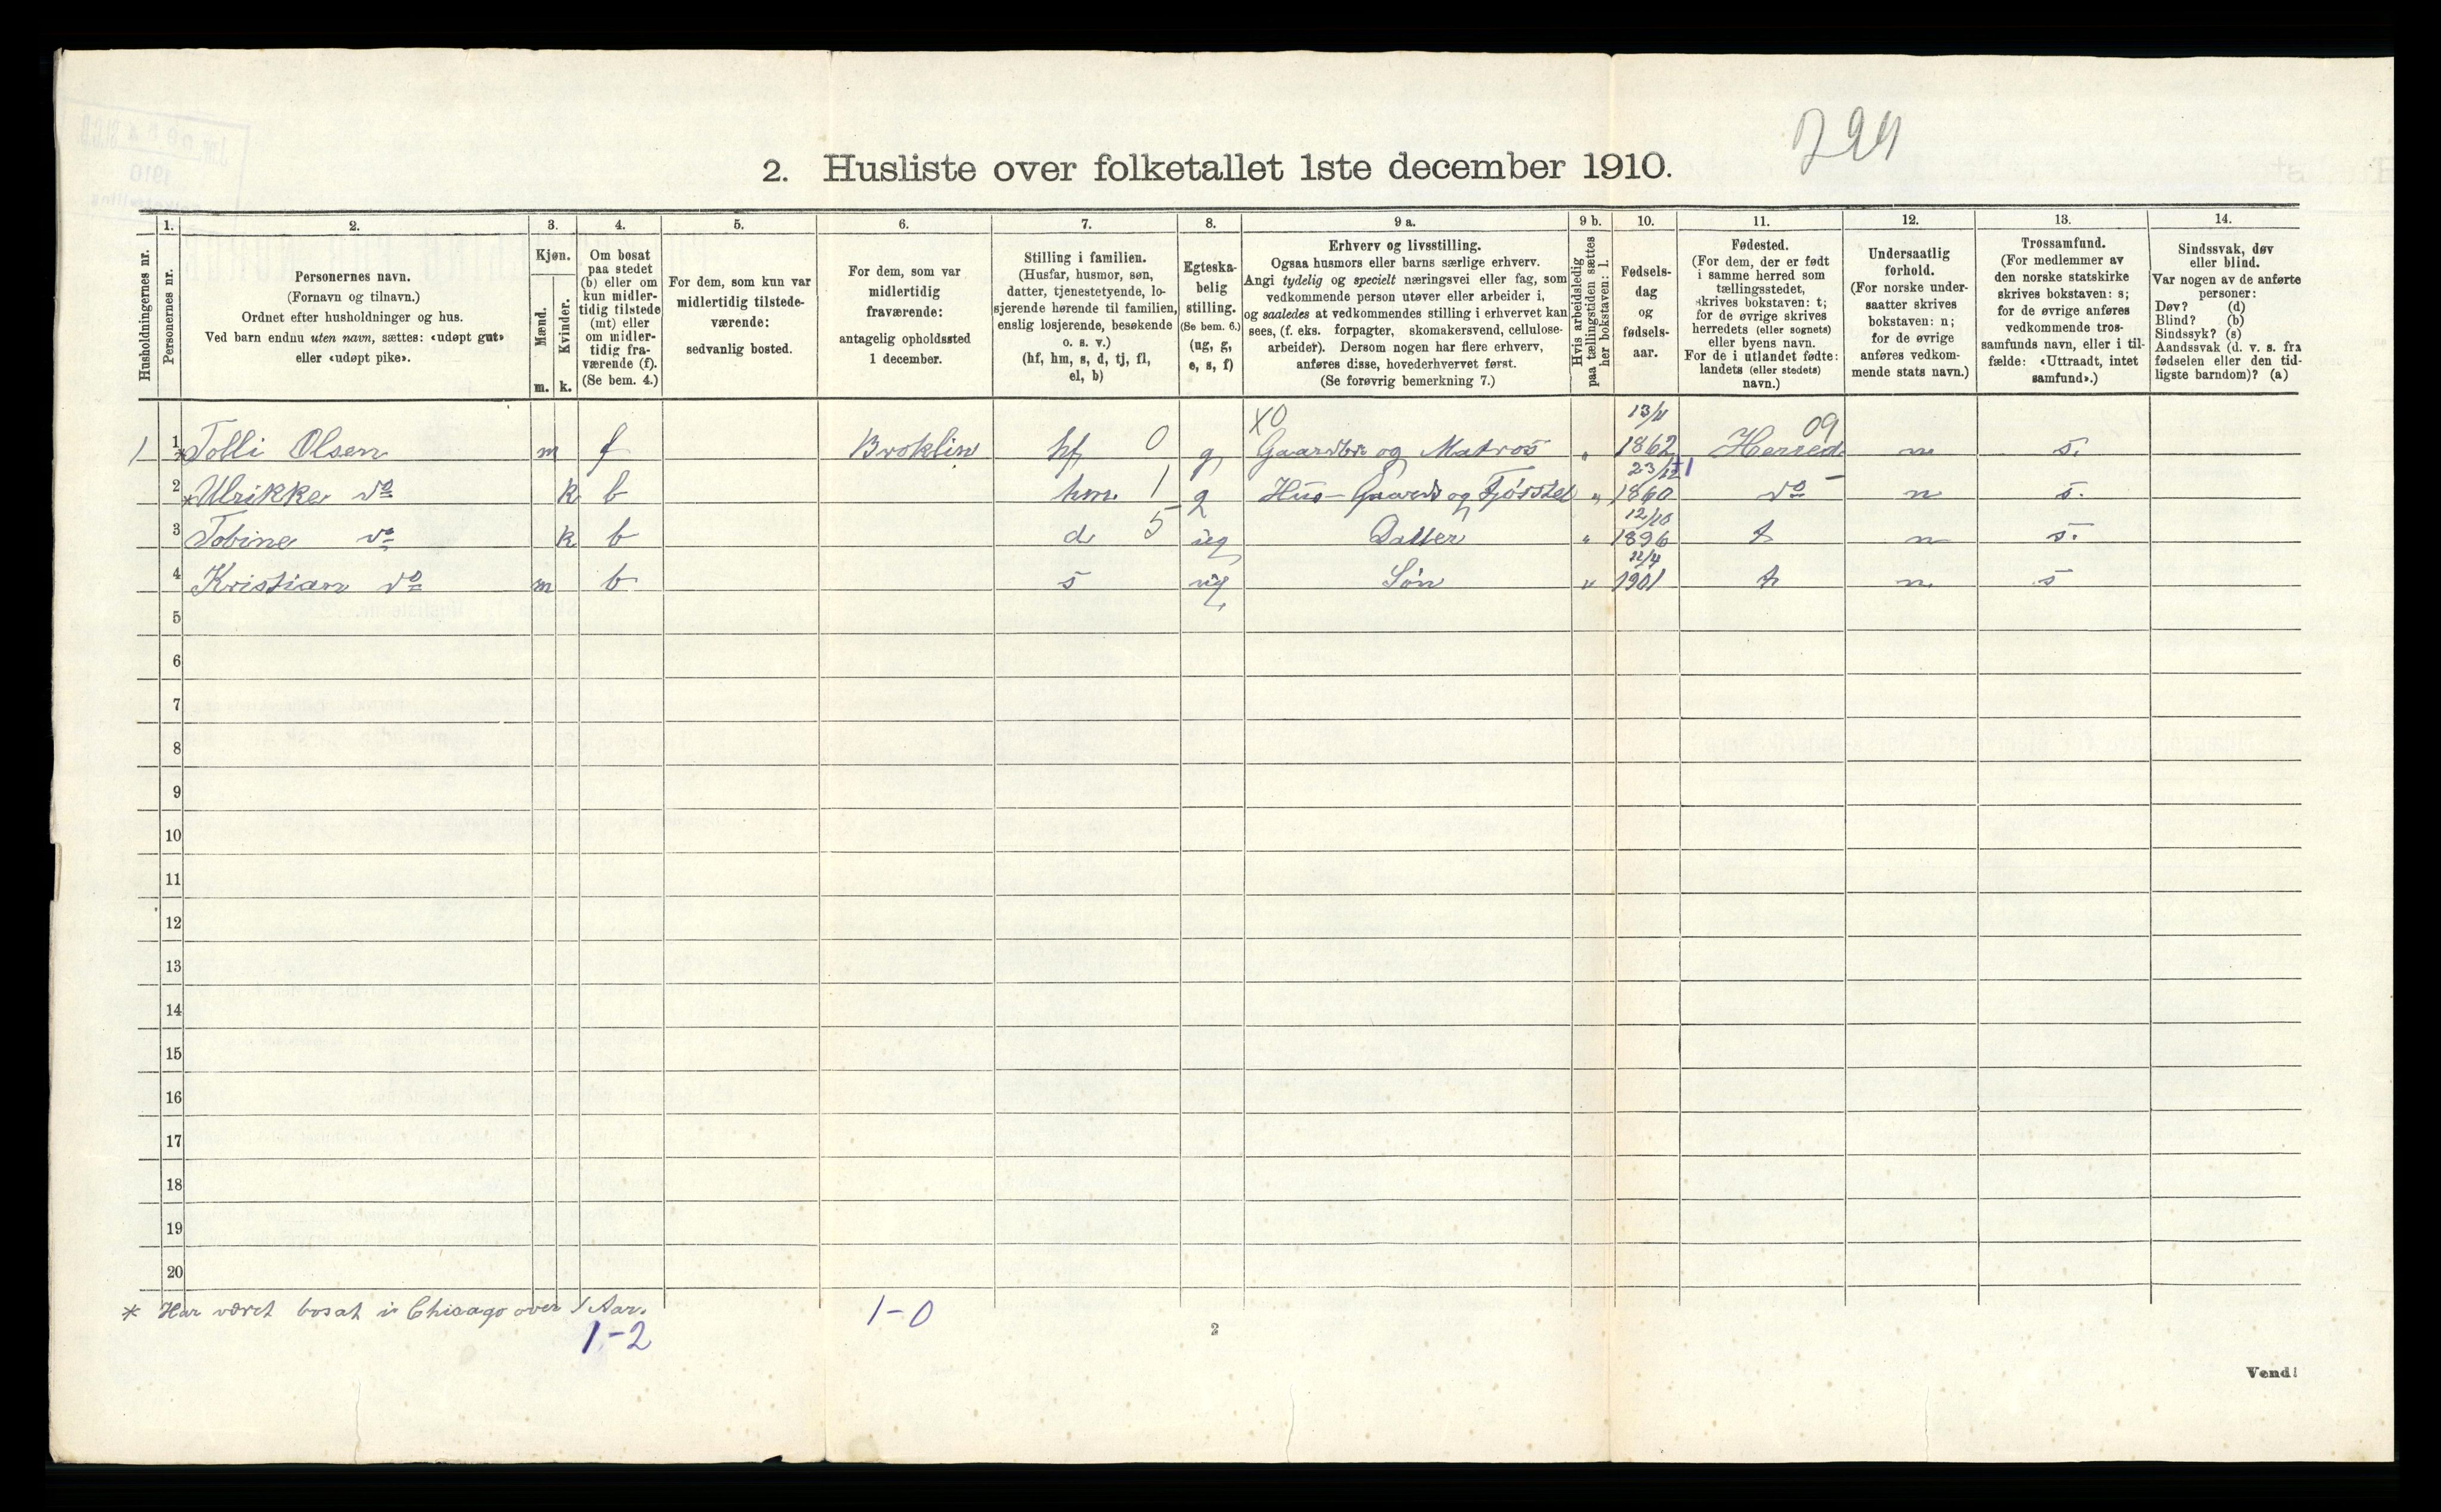 2. Husliste over folketallet 1ste december 1910.
1. 2. 3. 4. 5. 6. 7. 8. 9 a. 9 b. 10. 11. 12. 13. 14.
Husholdningernes nr.
Personernes nr.
Personernes navn.
(Fornavn og tilnavn.)
Ordnet efter husholdninger og hus.
Ved barn endnu uten navn, sættes: «udøpt gut»
eller «udøpt pike».
Kjøn.
Mænd.
m.
Kvinder.
k.
Om bosat
paa stedet
(b) eller om
kun midler-
tidig tilstede
(mt) eller
om midler-
tidig fra-
værende (f).
(Se bem. 4.)
For dem, som kun var
midlertidig tilstede-
værende:
sedvanlig bosted.
For dem, som var
midlertidig
fraværende:
antagelig opholdssted
1 december.
Stilling i familien.
(Husfar, husmor, søn,
datter, tjenestetyende, lo-
sjerende hørende til familien,
enslig losjerende, besøkende
o. s. v.)
(hf, hm, s, d, tj, fl,
el, b)
Egteska-
belig
stilling.
(Se bem. 6.)
(ug, g,
e, s, f)
Erhverv og livsstilling.
Ogsaa husmors eller barns særlige erhverv.
Angi tydelig og specielt næringsvei eller fag, som
vedkommende person utøver eller arbeider i,
og saaledes at vedkommendes stilling i erhvervet kan
sees, (f. eks. forpagter, skomakersvend, cellulose-
arbeider). Dersom nogen har flere erhverv,
anføres disse, hovederhvervet først.
(Se forøvrig bemerkning 7.)
Hvis arbeidsledig
paa tællingstiden sættes
her bokstaven: l.
Fødsels-
dag
og
fødsels-
aar.
Fødested.
(For dem, der er født
i samme herred som
tællingsstedet,
skrives bokstaven: t;
for de øvrige skrives
herredets (eller sognets)
eller byens navn.
For de i utlandet fødte:
landets (eller stedets)
navn.)
Undersaatlig
forhold.
(For norske under-
saatter skrives
bokstaven: n;
for de øvrige
anføres vedkom-
mende stats navn.)
Trossamfund.
(For medlemmer av
den norske statskirke
skrives bokstaven: s;
for de øvrige anføres
vedkommende tros-
samfunds navn, eller i til-
fælde: «Uttraadt, intet
samfund».)
Sindssvak, døv
eller blind.
Var nogen av de anførte
personer:
Døv? (d)
Blind? (b)
Sindssyk? (s)
Aandssvak (d. v. s. fra
fødselen eller den tid-
ligste barndom)? (a)
X0 13/11 09
1 1 *Tolli Olsen m f Broklin hf 0 g og Matros " 1862 Herred n s.
23/12 +1
2 *Ulrikke do k b hm. 1 g Hus- og " 1860 do n s.
12/10
3 Tobine do k b d 5 ug Datter " 1896 t n s.
4 Kristian do m b s ug Søn " 1901 t n. s
5
6
7
8
9
10
11
12
13
14
15
16
17
18
19
20
* Har været bosat i Chicago over 1 Aar.
1-2 1-0
2
Vend!